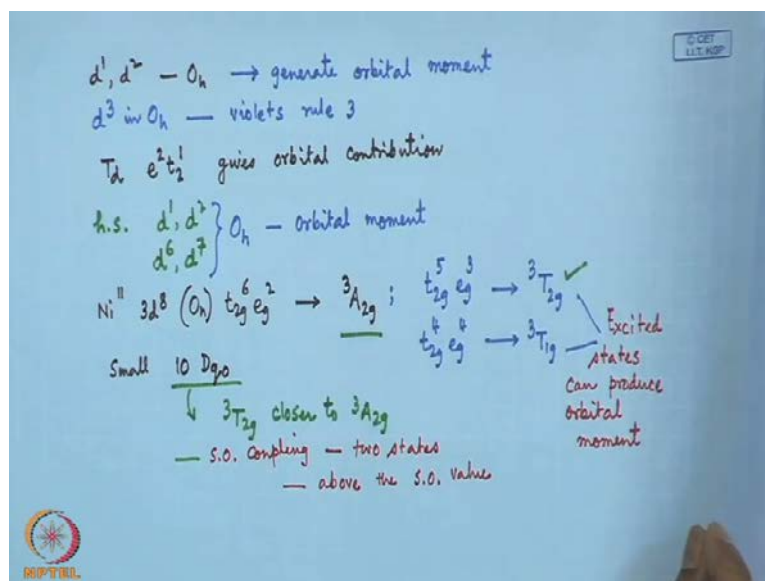 © CET
I.I.T. KGP
d¹, d² – Oₕ → generate orbital moment
d³ in Oₕ — violets rule 3
T_d e² t₂¹ gives orbital contribution
h.s. d¹, d²
d⁶, d⁷ } Oₕ – orbital moment
Ni^II 3d⁸ (Oₕ) t₂g⁶ eg² → ³A₂g ; t₂g⁵ eg³ → ³T₂g ✓
t₂g⁴ eg⁴ → ³T₁g
Excited
states
can produce
orbital
moment
Small 10 Dq,o
↓ ³T₂g closer to ³A₂g
— S.O. Coupling – two states
— above the S.O. value
NPTEL